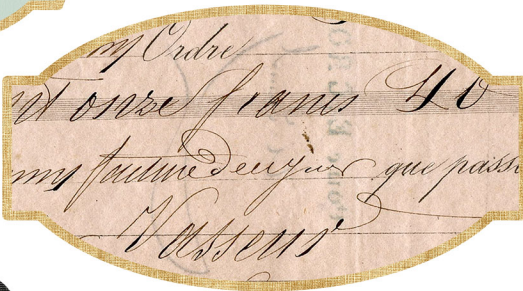 my Ordre
nt onze francs 40
my facture de ce jour que passe
Vasseur